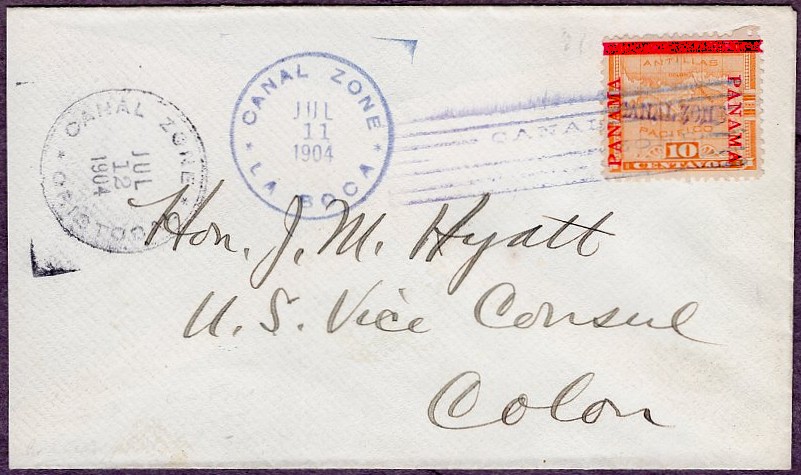 CANAL ZONE
JUL
11
1904
LA BOCA
CANAL ZONE
JUL
12
1904
CRISTOBAL
CANAL
ANTILLAS
PANAMA
CANAL ZONE
PANAMA
PACIFICO
10
CENTAVOS
Hon. J. M. Hyatt
U. S. Vice Consul
Colon